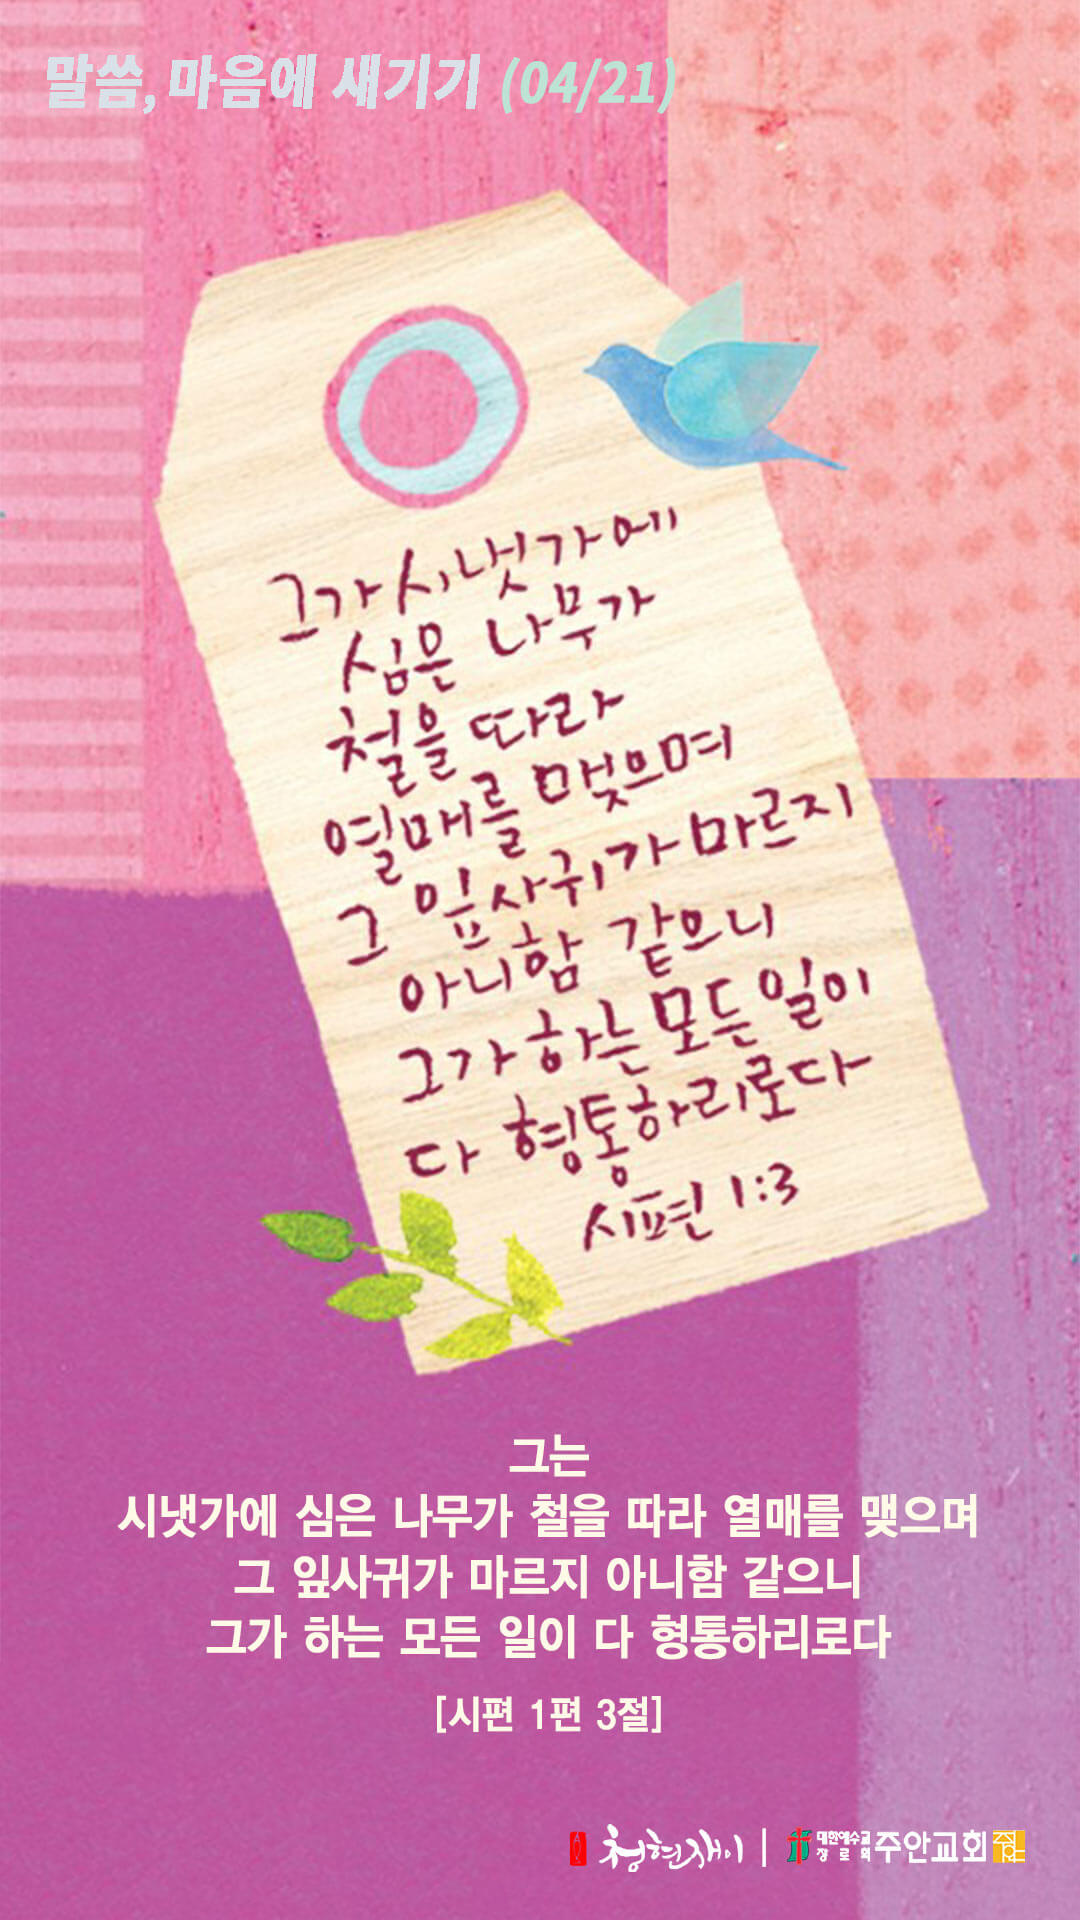 말씀, 마음에 새기기 (04/21)
그가 시냇가에
심은 나무가
철을 따라
열매를 맺으며
그 잎사귀가 마르지
아니함 같으니
그가 하는 모든 일이
다 형통하리로다
시편 1:3
그는
시냇가에 심은 나무가 철을 따라 열매를 맺으며
그 잎사귀가 마르지 아니함 같으니
그가 하는 모든 일이 다 형통하리로다
[시편 1편 3절]
청현재이 | 대한예수교 장로회 주안교회